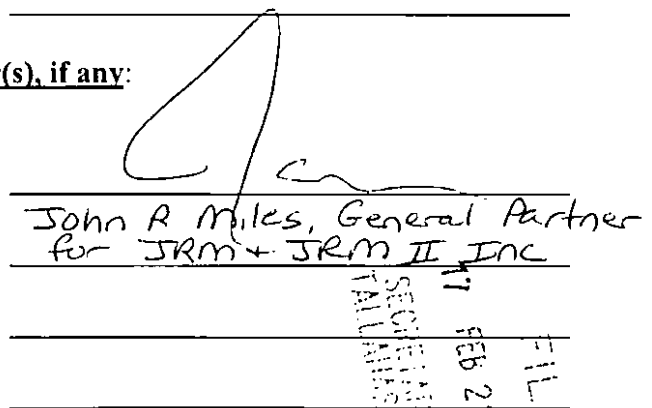 (s), if any:
John R Miles, General Partner
for JRM + JRM II Inc
17 FEB 2
FIL